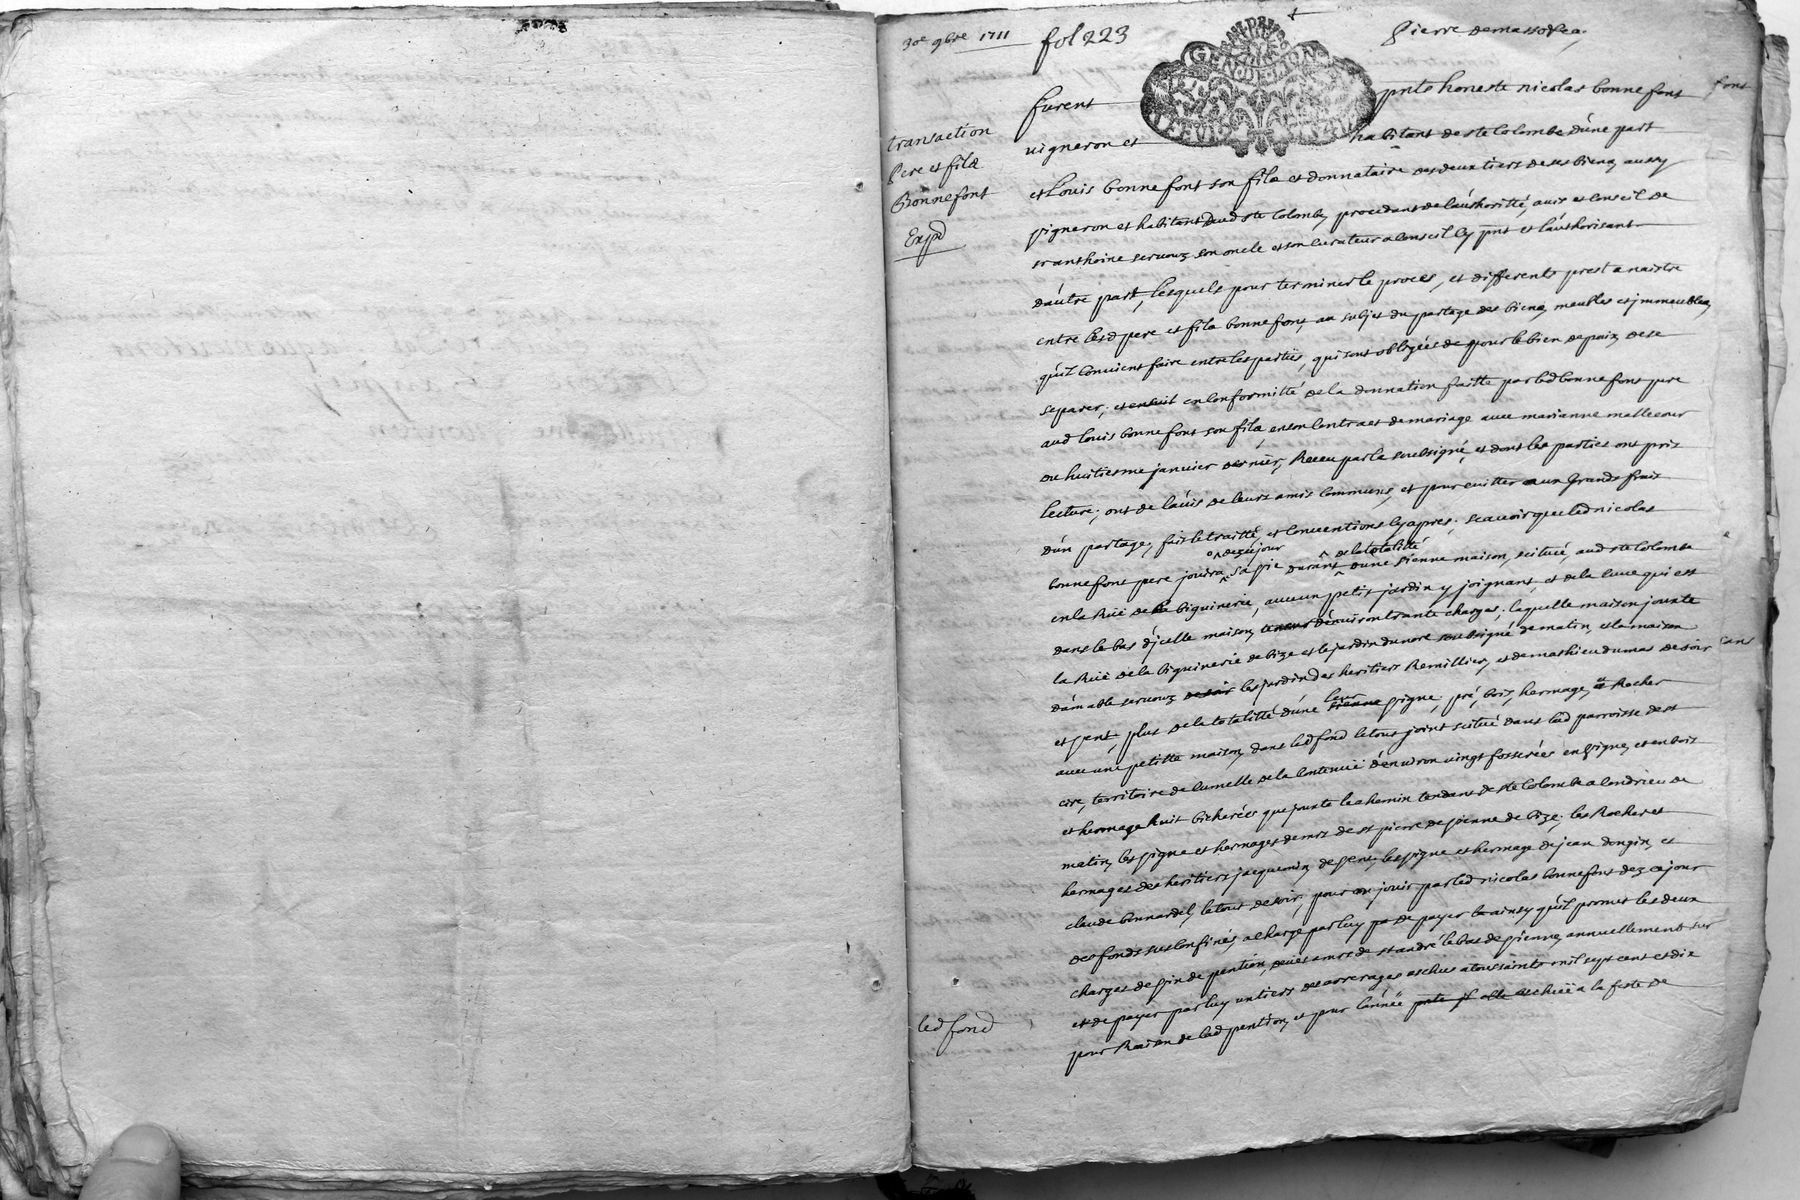 30e 9bre 1711 fol 223
Pierre demasso
transaction
Pere et fils
Bonnefont
Expd
furent pnts honeste nicolas bonnefont
vigneron et habitant de ste Colombe d'une part
et Louis bonnefont son fils et donnataire des deux tiers de ses biens, aussy
vigneron et habitant dud ste Colombe, procedant de l'authoritté, avis et conseil de
sr anthoine servonz son oncle et son curateur a conseil Cy pnt et l'authorisant
d'autre part, Lesquels pour terminer le proces, et differents prest a naistre
entre lesd pere et fils bonnefont, au subjet du partage des biens, meubles et immeubles,
qu'il Convient faire entre les parties, qui sont obligées de pour le bien de paix, de se
separer, et ensuit en Conformitté de la donnation faitte par led bonnefont pere
aud Louis bonnefont son fils en son Contract de mariage avec marianne mallecour
du huitiesme janvier dernier, Receu par le soubsigné, et dont les parties ont pris
lecture, ont de l'avis de leurs amis Communs, et pour evitter aux grands frais
d'un partage, fait le traitté, et Conventions Cy apres. scavoir que led nicolas
dezcejour de la totalitté
bonnefont pere jouira sa vie durant d'une sienne maison, scituée, aud ste Colombe
en la Ruë de la biguinerie, avec un petit jardin y joignant, et de la cuve qui est
dans le bas d'jcelle maison, teneur d'environ trante charges, laquelle maison jouxte
la Ruë de la biguinerie de bize et le jardin du nore soubsigné de matin, et la maison
d'amable servonz de soir les jardin des heritiers Remillier, et de mathieu dumas de soir
et vent, plus de la totalitté d'une leur sienne vigne, pré, bois, hermage, et Rocher
avec une petitte maison, dans led fond le tout joint scitué dans lad parroisse de st
cire, territoire de lumelle de la Contenuë d'environ vingt fosserées en vigne, et en bois
et hermage huit bicherées que jouxte le chemin tendant de ste Colombe a Condrieu de
matin, les vigne et hermages de mrs de st pierre de vienne de bize, les Rocher et
hermages des heritiers jacquemin, de vent, les vigne et hermage de jean dongin, et
claude bonnardel, le tout de soir, pour en jouir par led nicolas bonnefont dez ce jour
des fonds susconfinés, a charge par luy pa de payer la ainsy qu'il promet les deux
charges de vin de pention, deües a mrs de st andré le bas de vienne, annuellement sur
led fond
et de payer par luy un tiers des arrerages eschus a toussaints mil sept cent et dix
pour Raison de lad pention, et pour l'année pnte jl alla eschuë a la feste de